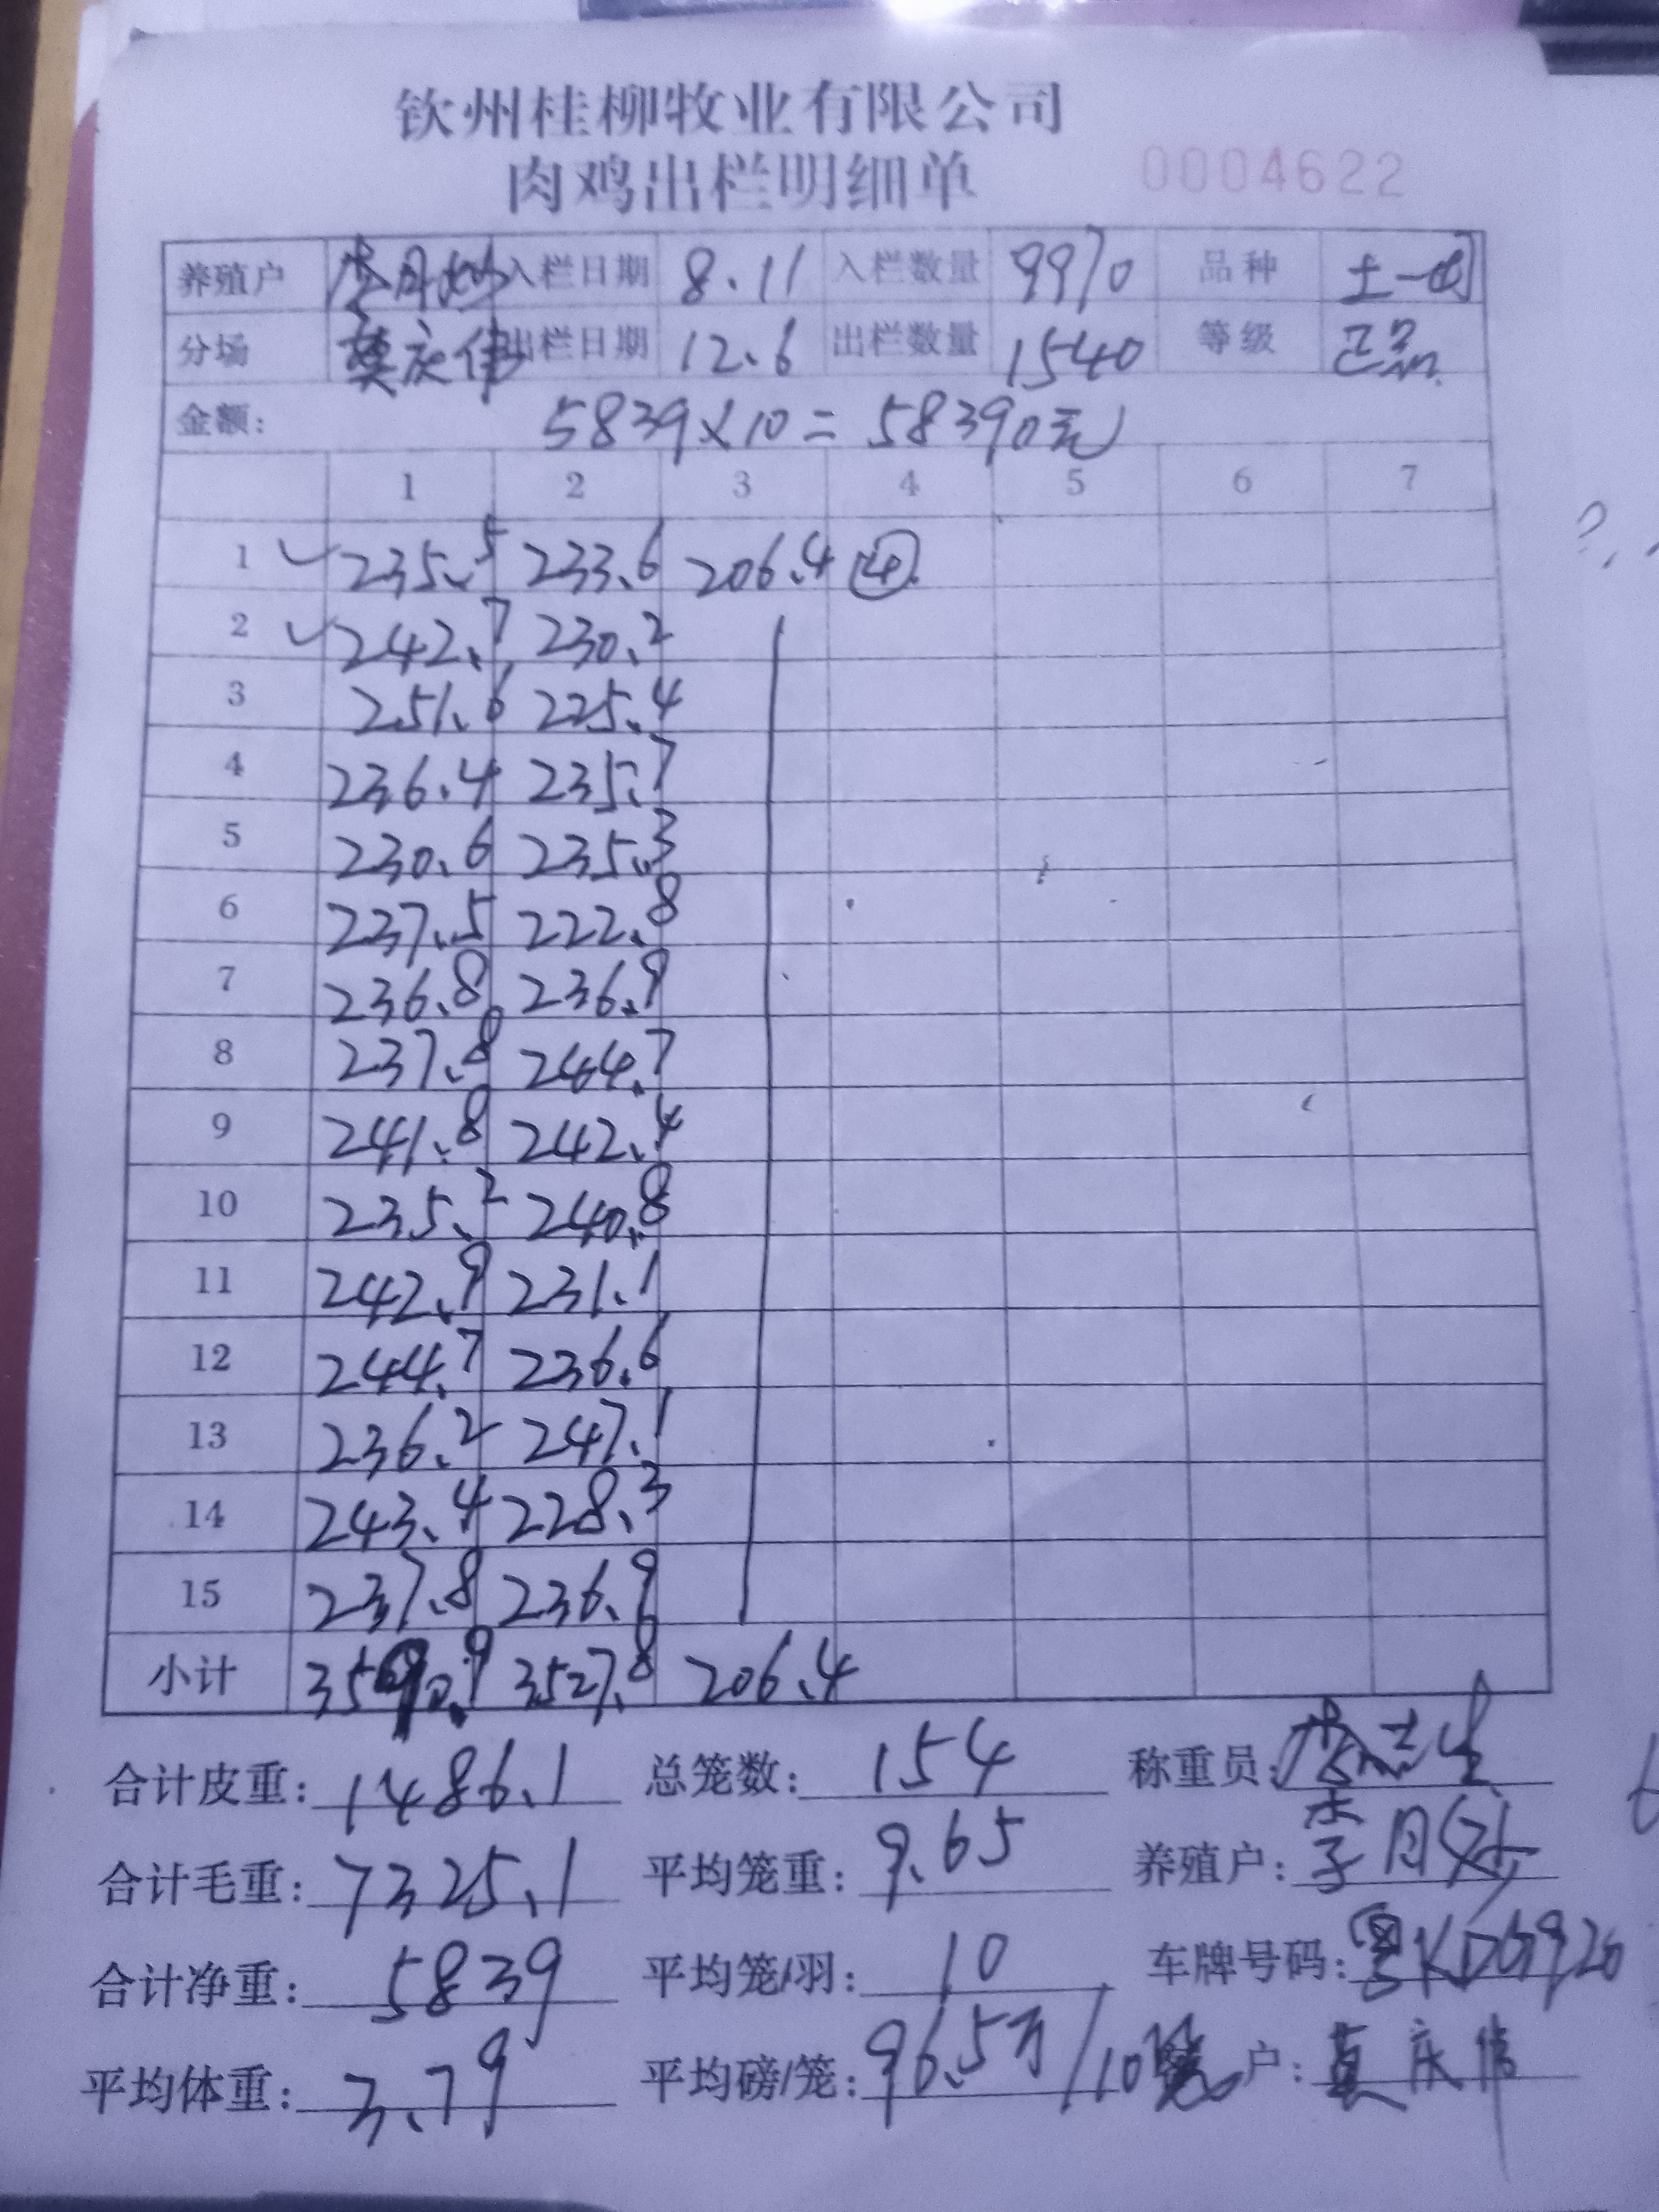 钦州桂柳牧业有限公司
肉鸡出栏明细单 0004622
养殖户 李月 入栏日期 8.11 入栏数量 9970 品种 土一
分场 莫庆伟 出栏日期 12.6 出栏数量 1540 等级 正品
金额: 5839×10=58390元
1 2 3 4 5 6 7
1 ✓ 235.5 233.6 206.4 ④
2 ✓ 242.7 230.2
3 251.6 225.4
4 236.4 235.7
5 230.6 235.3
6 237.5 222.8
7 236.8 236.9
8 237.8 244.7
9 241.8 242.4
10 235.2 240.8
11 242.9 231.1
12 244.7 236.6
13 236.2 247.1
14 243.4 228.3
15 237.8 236.9
小计 3590.9 3527.8 206.4
合计皮重: 1486.1 总笼数: 154 称重员:
合计毛重: 7325.1 平均笼重: 9.65 养殖户: 李月
合计净重: 5839 平均笼/羽: 10 车牌号码: 粤KDG920
平均体重: 3.79 平均磅/笼: 96.5斤/10 户: 莫庆伟